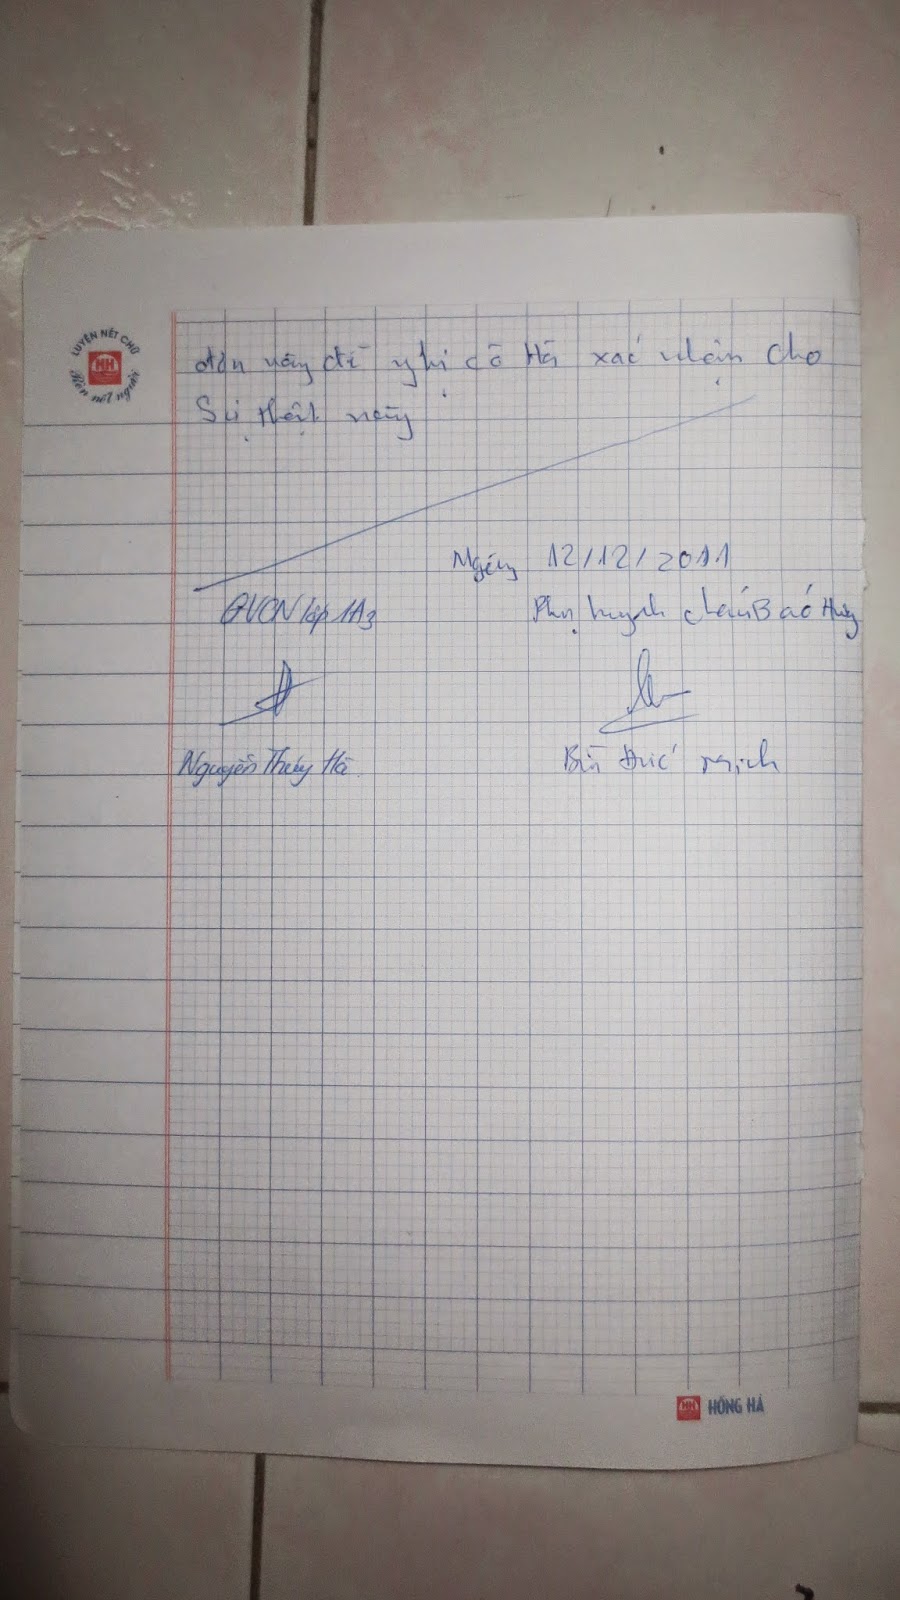 LUYỆN NÉT CHỮ
Rèn nết người
đơn này đề nghị cô Hà xác nhận cho
Sự thật này
Ngày 12/12/2011
GVCN lớp 1A3
Phụ huynh cháu Bảo Huy
Nguyễn Thúy Hà
Bùi Đức Mịch
HH HỒNG HÀ